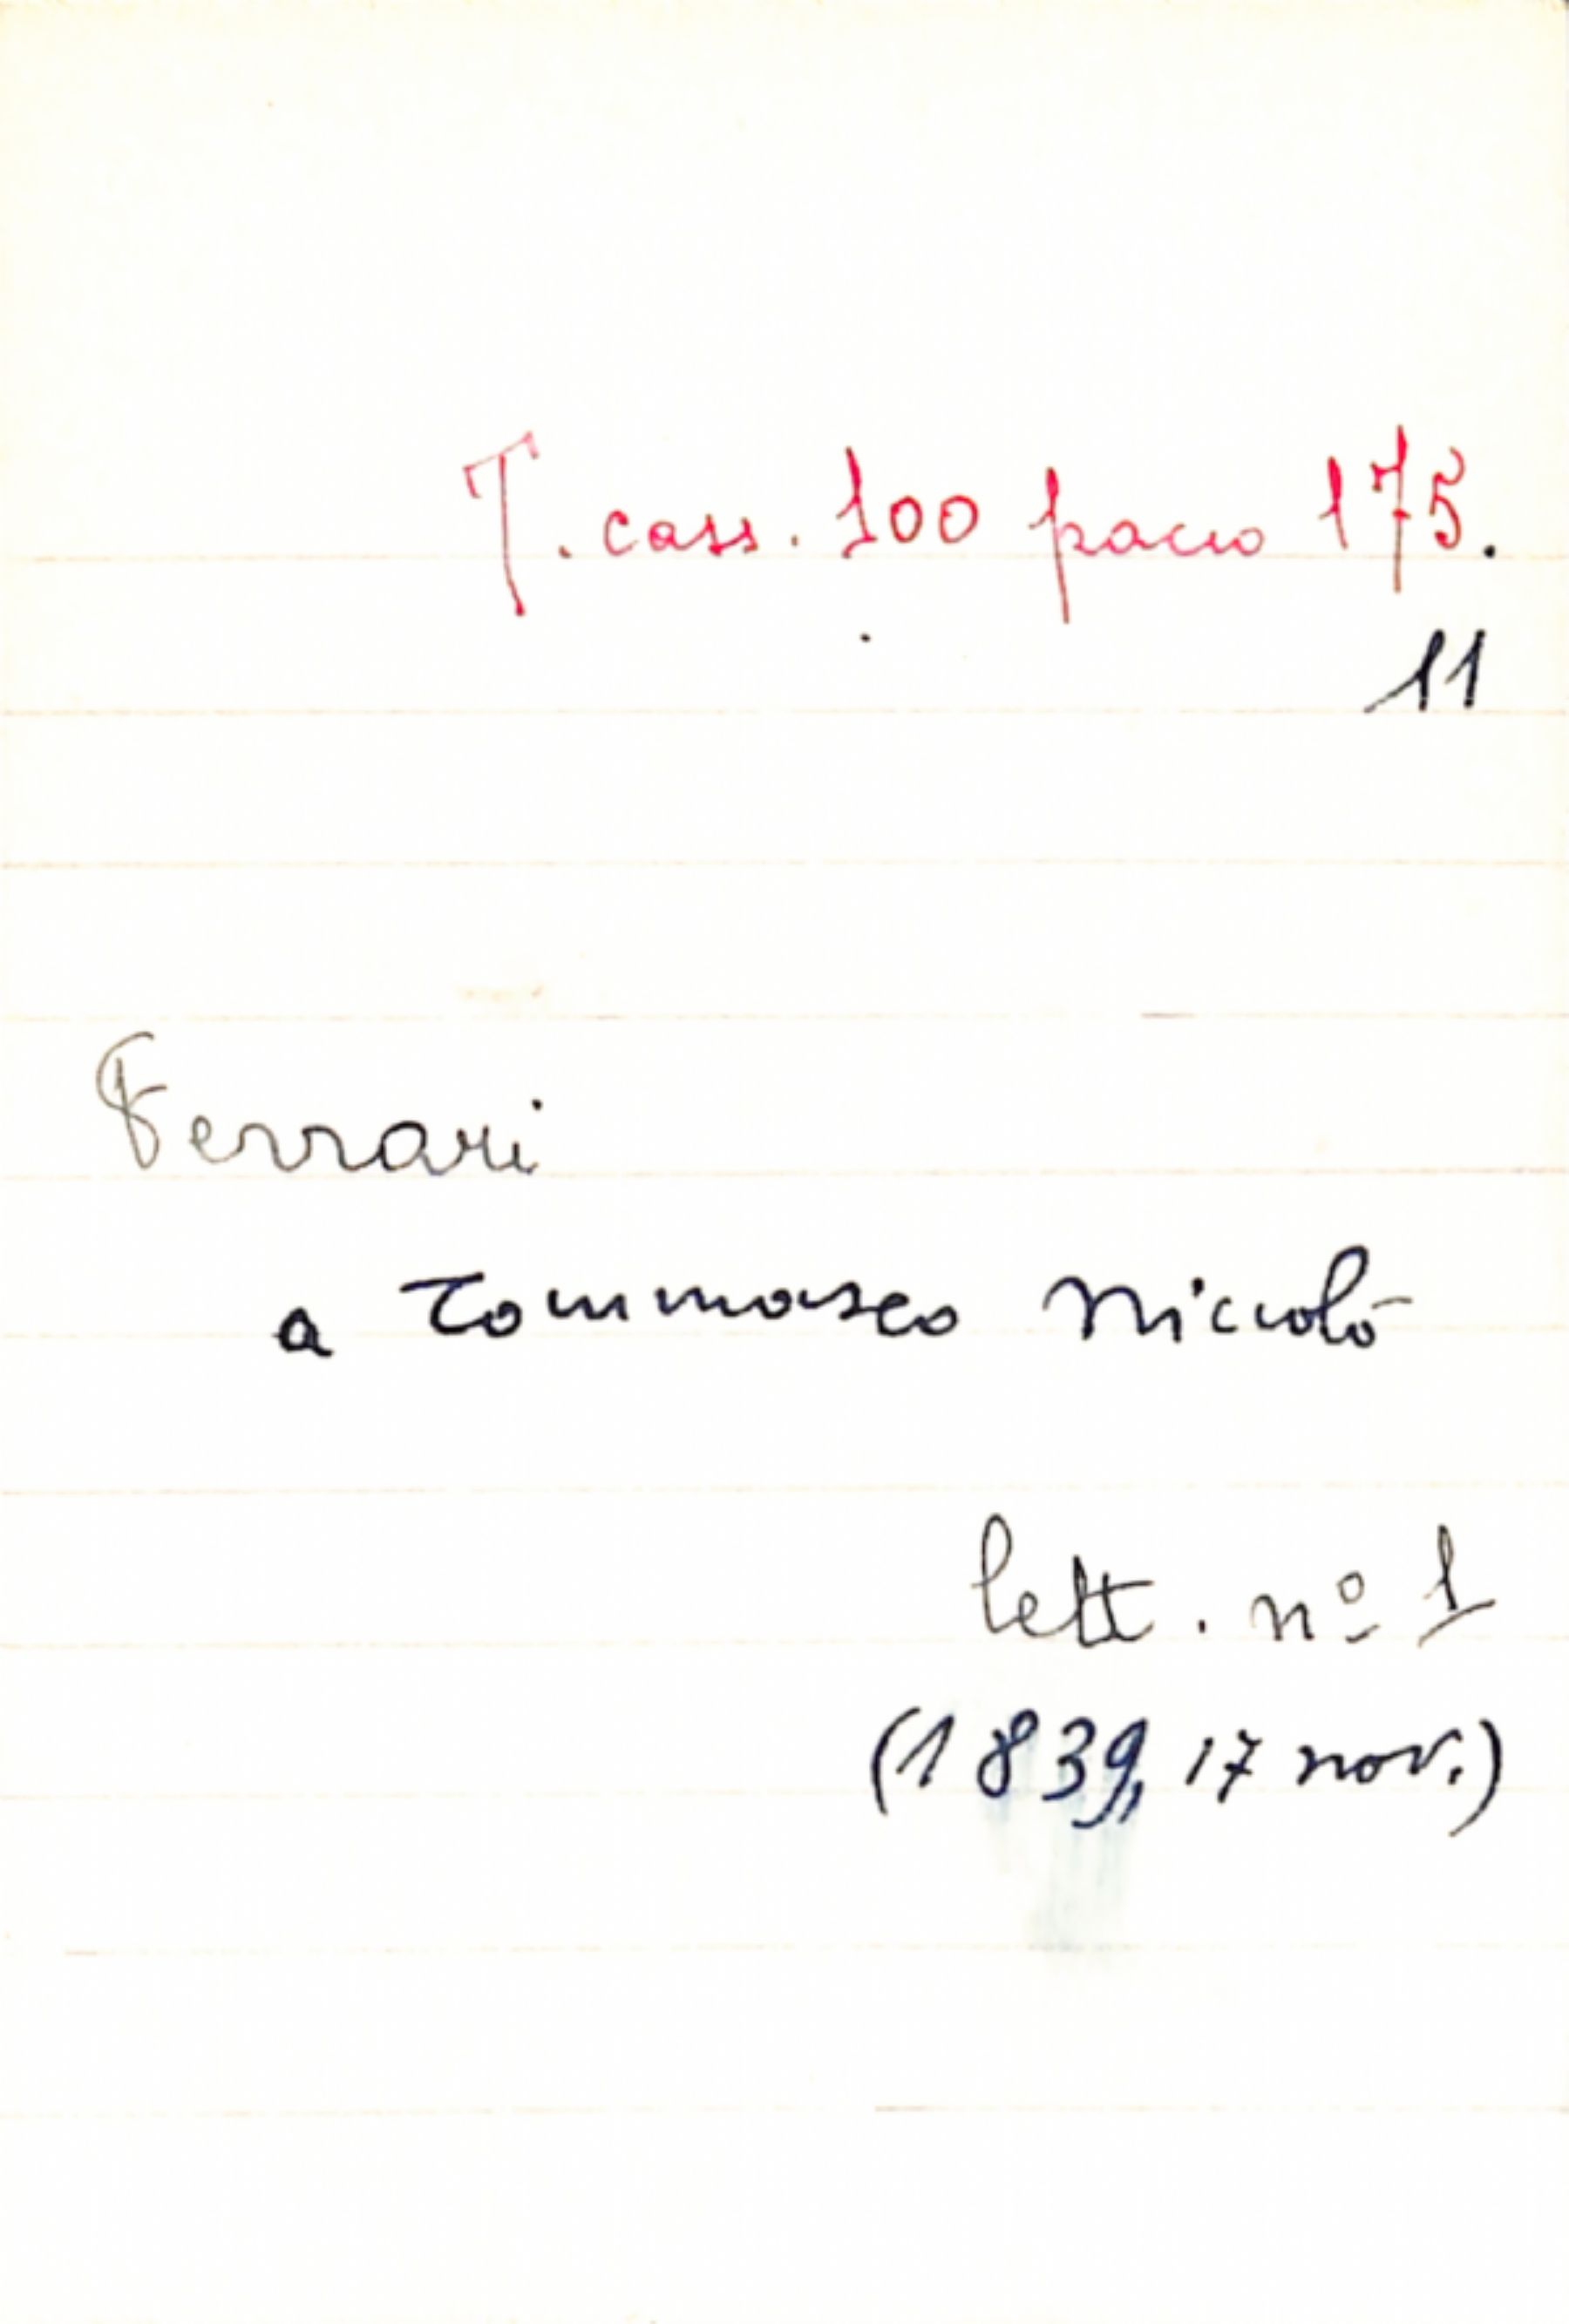 T. cass. 100 pacco 175.
11
Ferrari
a Tommaseo Niccolò
lett. nº 1
(1839, 17 nov.)